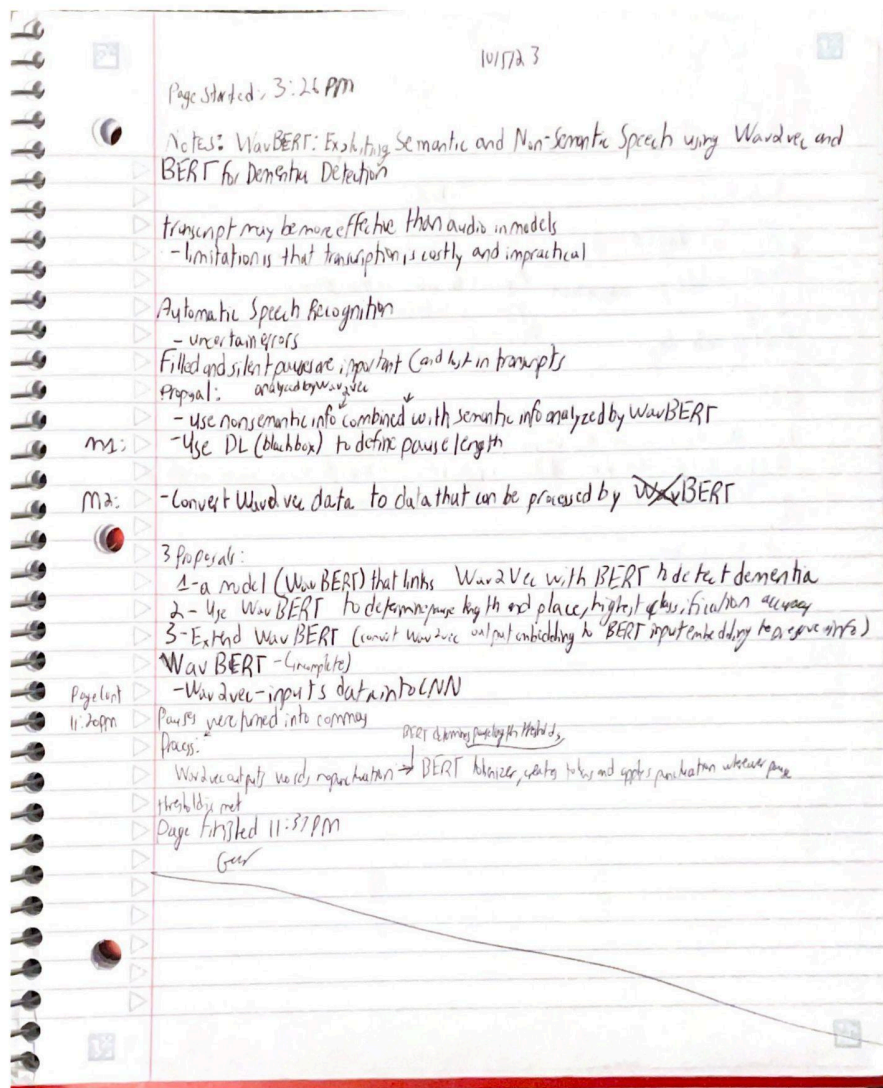 10/5/23
Page Started: 3:26 PM
Notes: WavBERT: Exploiting Semantic and Non-Semantic Speech using Wav2vec and
BERT for Dementia Detection
transcript may be more effective than audio in models
- limitation is that transcription is costly and impractical
Automatic Speech Recognition
- uncertain errors
Filled and silent pauses are important (and lost in transcripts
Proposal: analyzed by Wav2vec
- Use nonsemantic info combined with semantic info analyzed by WavBERT
M1: - Use DL (blackbox) to define pause length
M2: - Convert Wav2vec data to data that can be processed by BERT
3 Proposals:
1 - a model (WavBERT) that links Wav2Vec with BERT to detect dementia
2 - Use WavBERT to determine pause length and place, highest classification accuracy
3 - Extend WavBERT (convert Wav2vec output embedding to BERT input embedding to preserve info)
WavBERT - (incomplete)
- Wav2vec - inputs data into CNN
Page Cont
11:20pm Pauses were turned into commas
BERT determines pause length thresholds
Process:
Wav2vec outputs words no punctuation → BERT tokenizer, creates tokens and applies punctuation whenever pause
threshold is met
Page finished 11:37PM